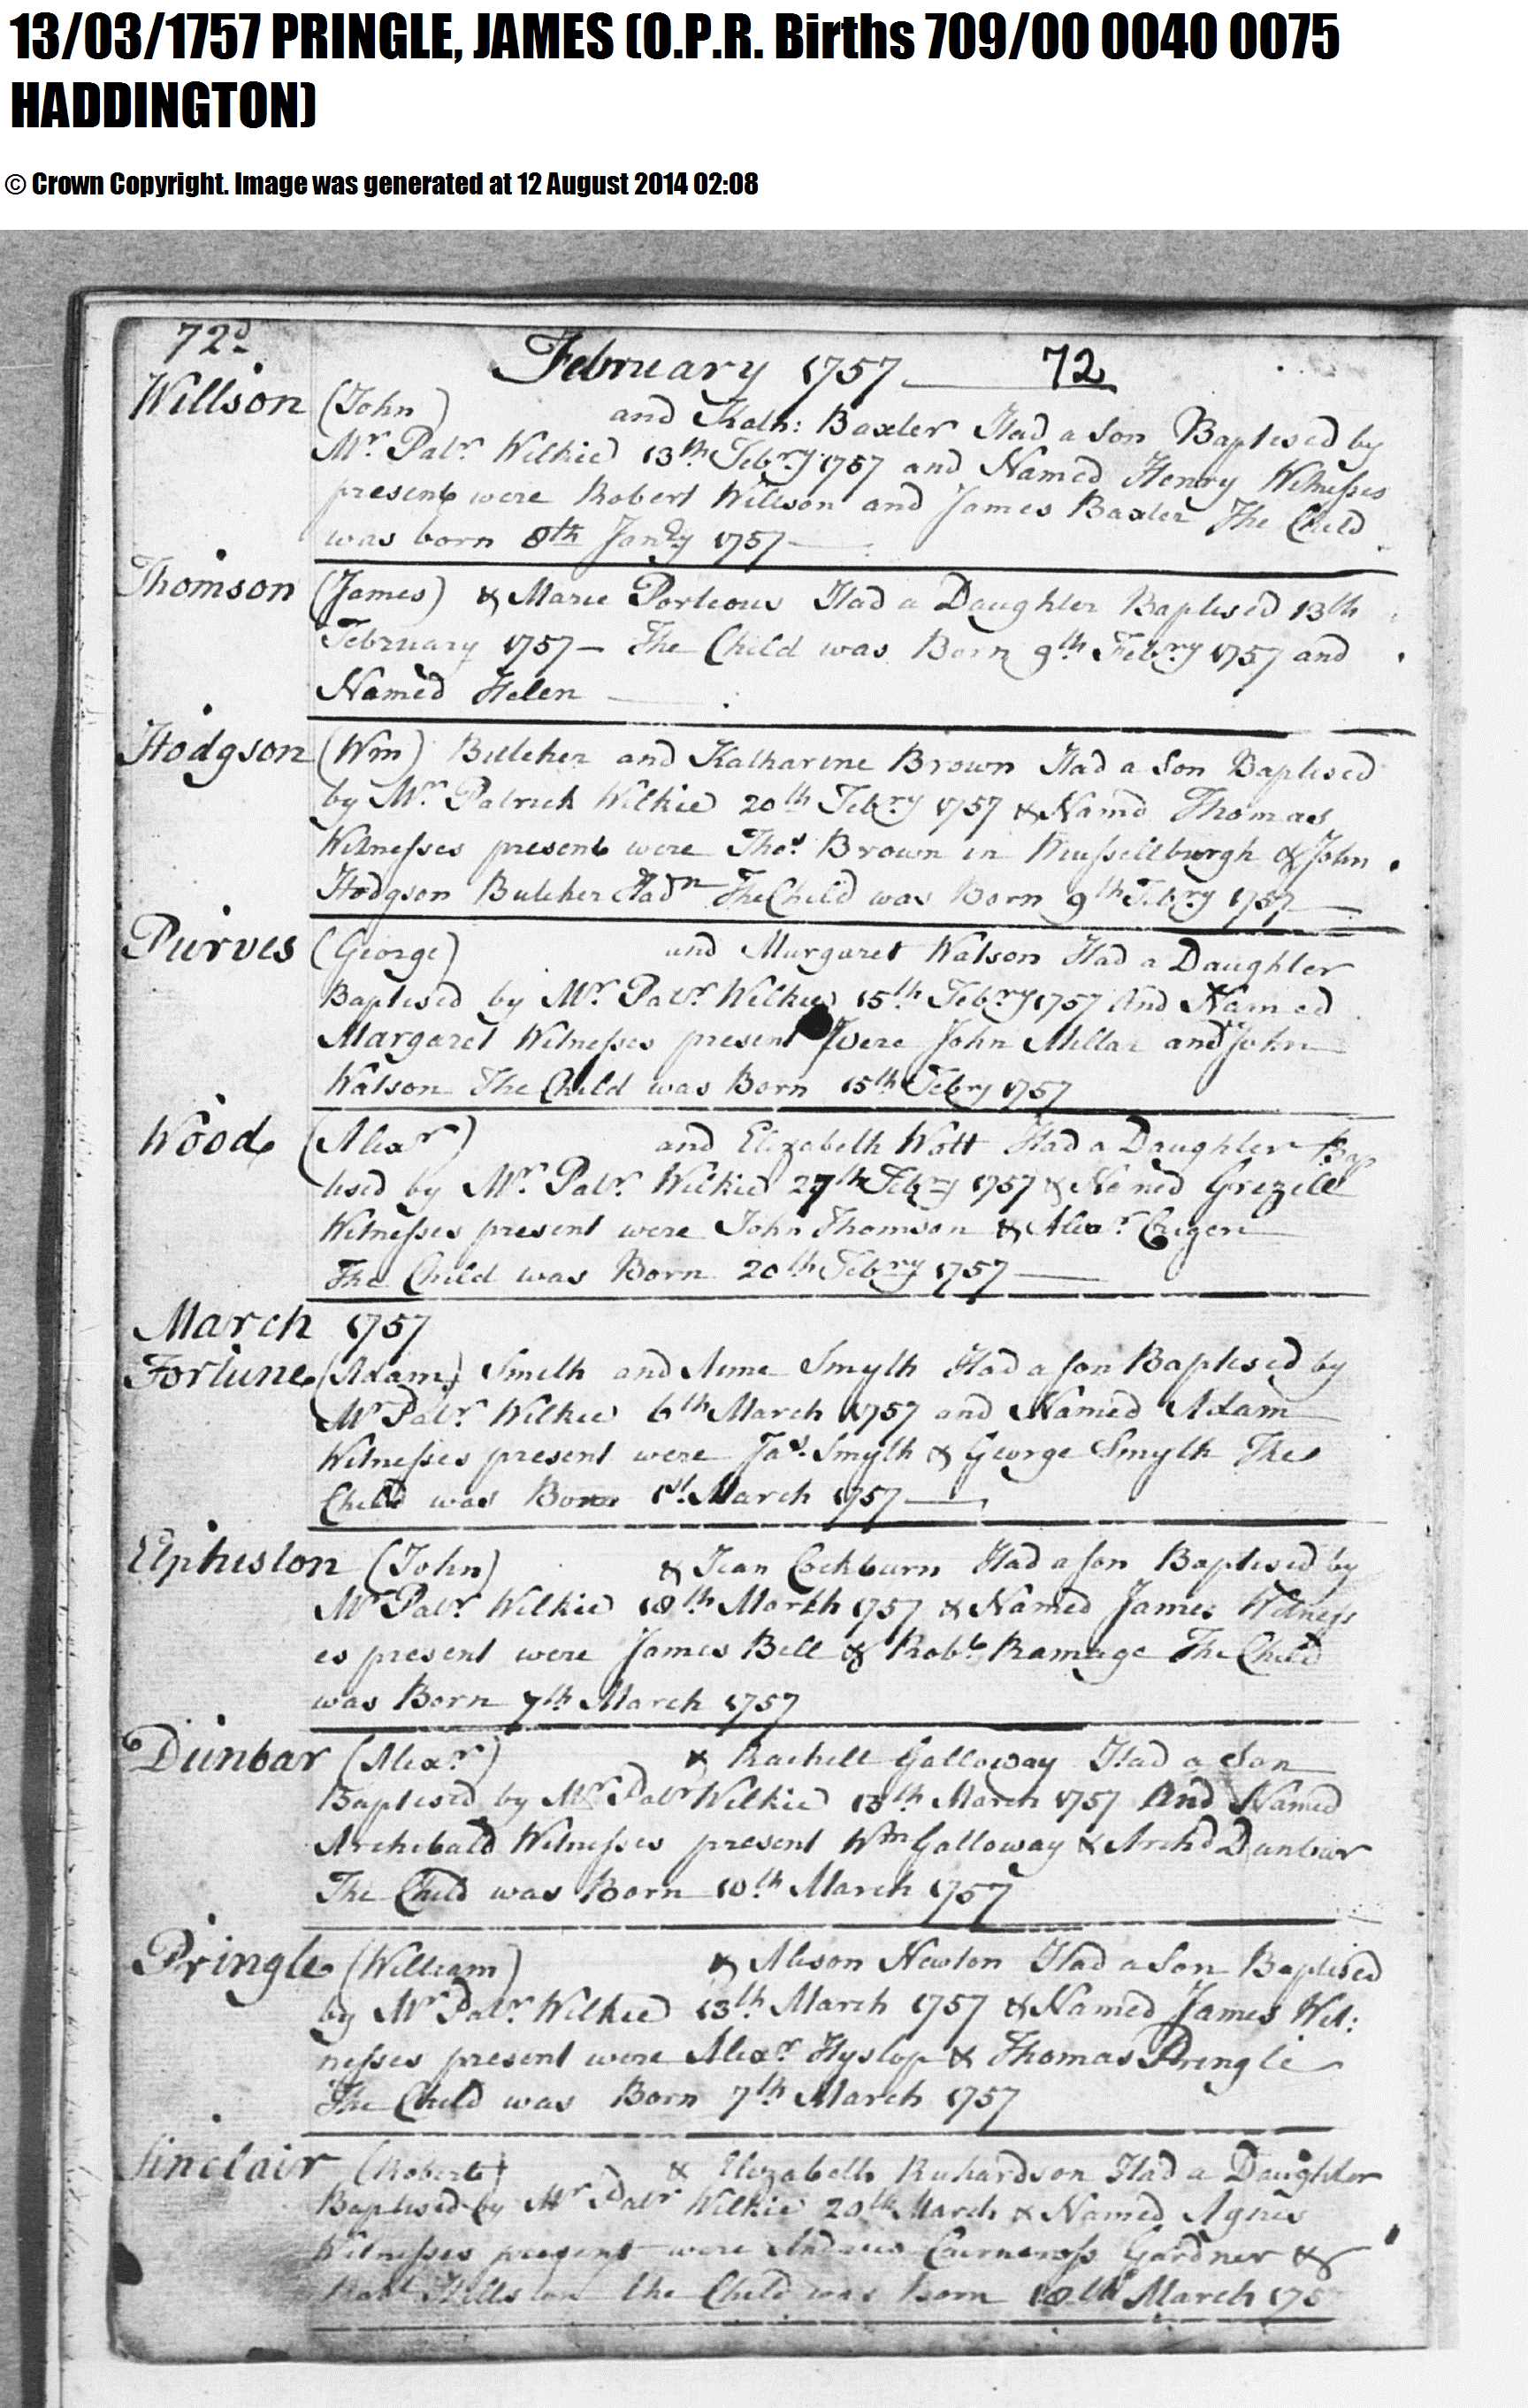 13/03/1757 PRINGLE, JAMES (O.P.R. Births 709/00 0040 0075
HADDINGTON)
© Crown Copyright. Image was generated at 12 August 2014 02:08
72d
February 1757 72
Willson (John) and Kath: Baxter Had a Son Baptised by
Mr. Patr. Wilkie 13th Febry 1757 and Named Henry Witnesses
present were Robert Willson and James Baxter The Child
was born 8th Janry 1757
Thomson (James) & Marie Porteous Had a Daughter Baptised 13th
February 1757 – The Child was Born 9th Febry 1757 and
Named Helen
Hodgson (Wm) Butcher and Katharine Brown Had a Son Baptised
by Mr. Patrick Wilkie 20th Febry 1757 & Namd Thomas
Witnesses present were Thos Brown in Mussellburgh & John
Hodgson Butcher Hadn The Child was Born 9th Febry 1757
Purves (George) and Margaret Watson Had a Daughter
Baptised by Mr. Patr. Wilkie 15th Febry 1757 And Named
Margaret Witnesses present were John Millar and John
Watson The Child was Born 15th Febry 1757
Wood (Alexr) and Elizabeth Wott Had a Daughter Bap
tised by Mr. Patr. Wilkie 27th Febry 1757 & Named Grizell
Witnesses present were John Thomson & Alexr.
The Child was Born 20th Febry 1757
March 1757
Fortune (Adam) Smith and Anne Smyth Had a son Baptised by
Mr Patr. Wilkie 6th March 1757 and Named Adam
Witnesses present were Jas. Smyth & George Smyth The
Child was Born 1st. March 1757
Elphiston (John) & Jean Cockburn Had a son Baptised by
Mr Patr. Wilkie 18th March 1757 & Named James Witness
es present were James Bell & Robt Ramage The Child
was Born 7th March 1757
Dunbar (Alexr) & Rachell Galloway Had a Son
Baptised by Mr Patr Wilkie 13th March 1757 And Named
Archibald Witnesses present Wm Galloway & Archd Dunbar
The Child was Born 10th March 1757
Pringle (William) & Alison Newton Had a Son Baptised
by Mr Patr. Wilkie 13th March 1757 & Named James Wit:
nesses present were Alexr Hyslop & Thomas Pringle
The Child was Born 7th March 1757
Sinclair (Robert) & Elizabeth Richardson Had a Daughter
Baptised by Mr Patr Wilkie 20th March & Named Agnes
Witnesses present were Andrew Cairncross Gardner &
Robt the Child was Born 18th March 175